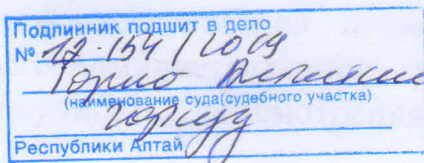 Подлинник подшит в дело
№ 12-154/2019
Горно-Алтайский
(наименование суда(судебного участка)
горсуд
Республики Алтай